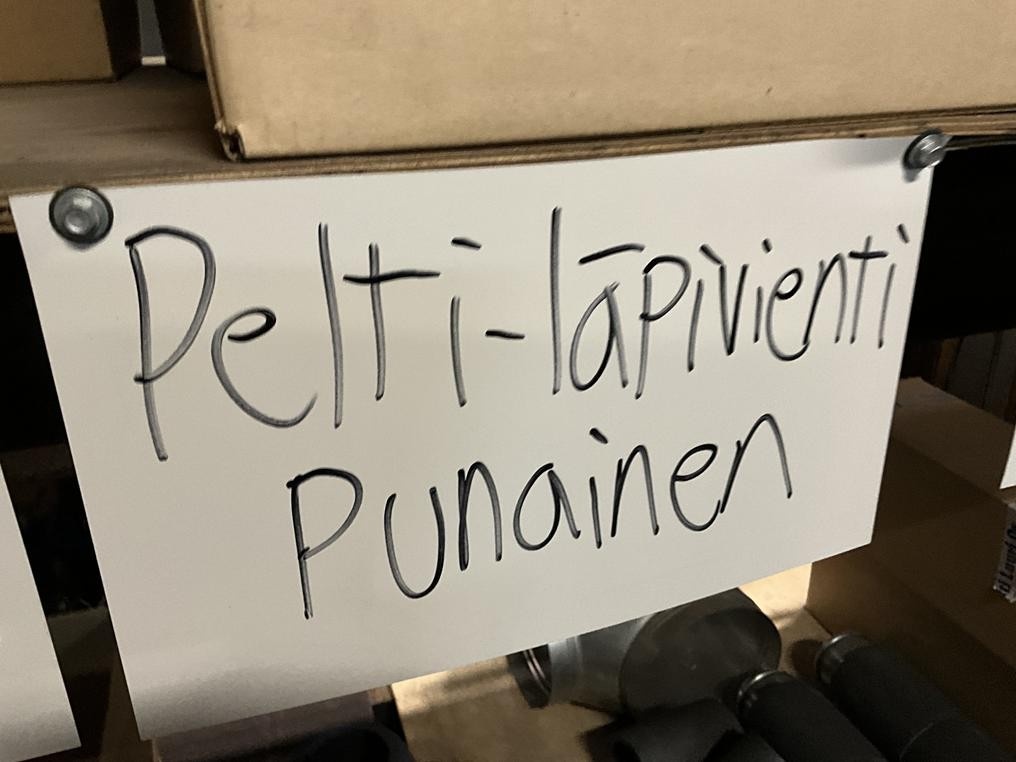 Pelti-läpivienti
Punainen